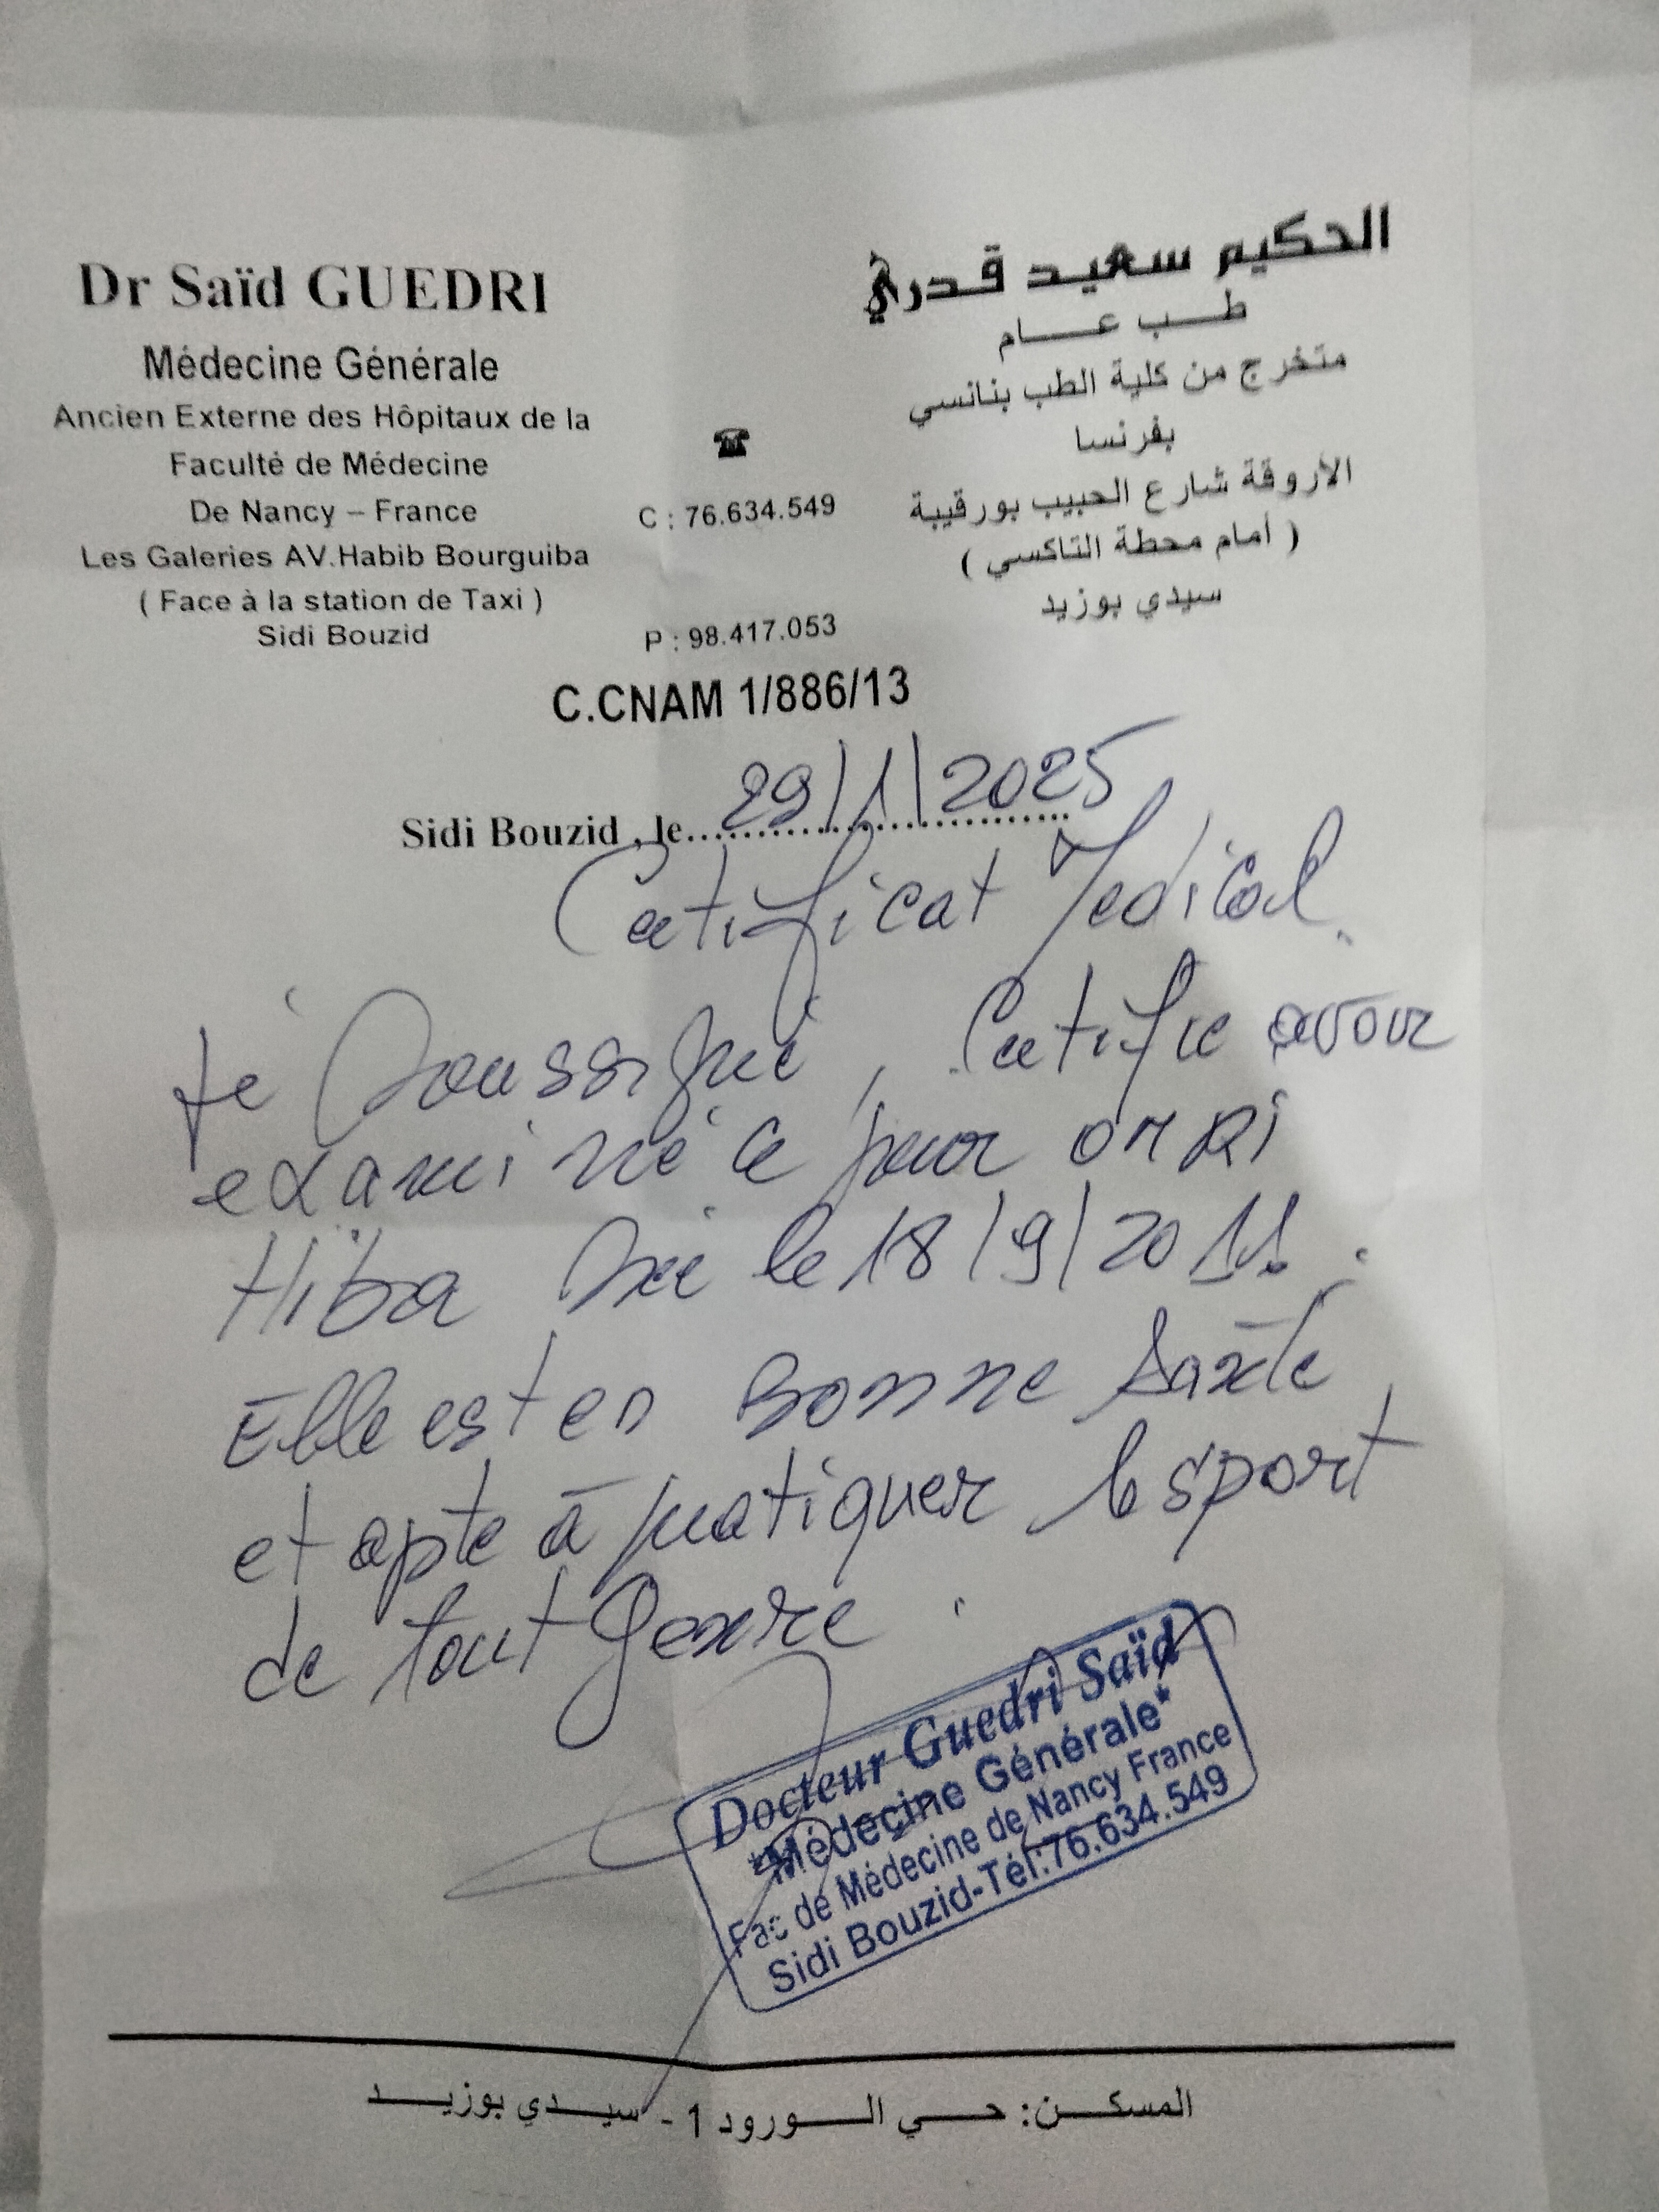 Dr Saïd GUEDRI
Médecine Générale
Ancien Externe des Hôpitaux de la
Faculté de Médecine
De Nancy – France
Les Galeries AV.Habib Bourguiba
( Face à la station de Taxi )
Sidi Bouzid
☎
C : 76.634.549
P : 98.417.053
الحكيم سعيد قدري
طب عام
متخرج من كلية الطب بنانسي
بفرنسا
الأروقة شارع الحبيب بورقيبة
( أمام محطة التاكسي )
سيدي بوزيد
C.CNAM 1/886/13
Sidi Bouzid , le 29/1/2025
Certificat Medical
Je Soussigné, Certifie avoir
examiné ce jour OMRI
Hiba née le 18/9/2011.
Elle est en Bonne Santé
et apte à pratiquer le sport
de tout genre.
Docteur Guedri Saïd
*Médecine Générale*
Fac de Médecine de Nancy France
Sidi Bouzid-Tél:76.634.549
المسكن: حي الورود 1 - سيدي بوزيد